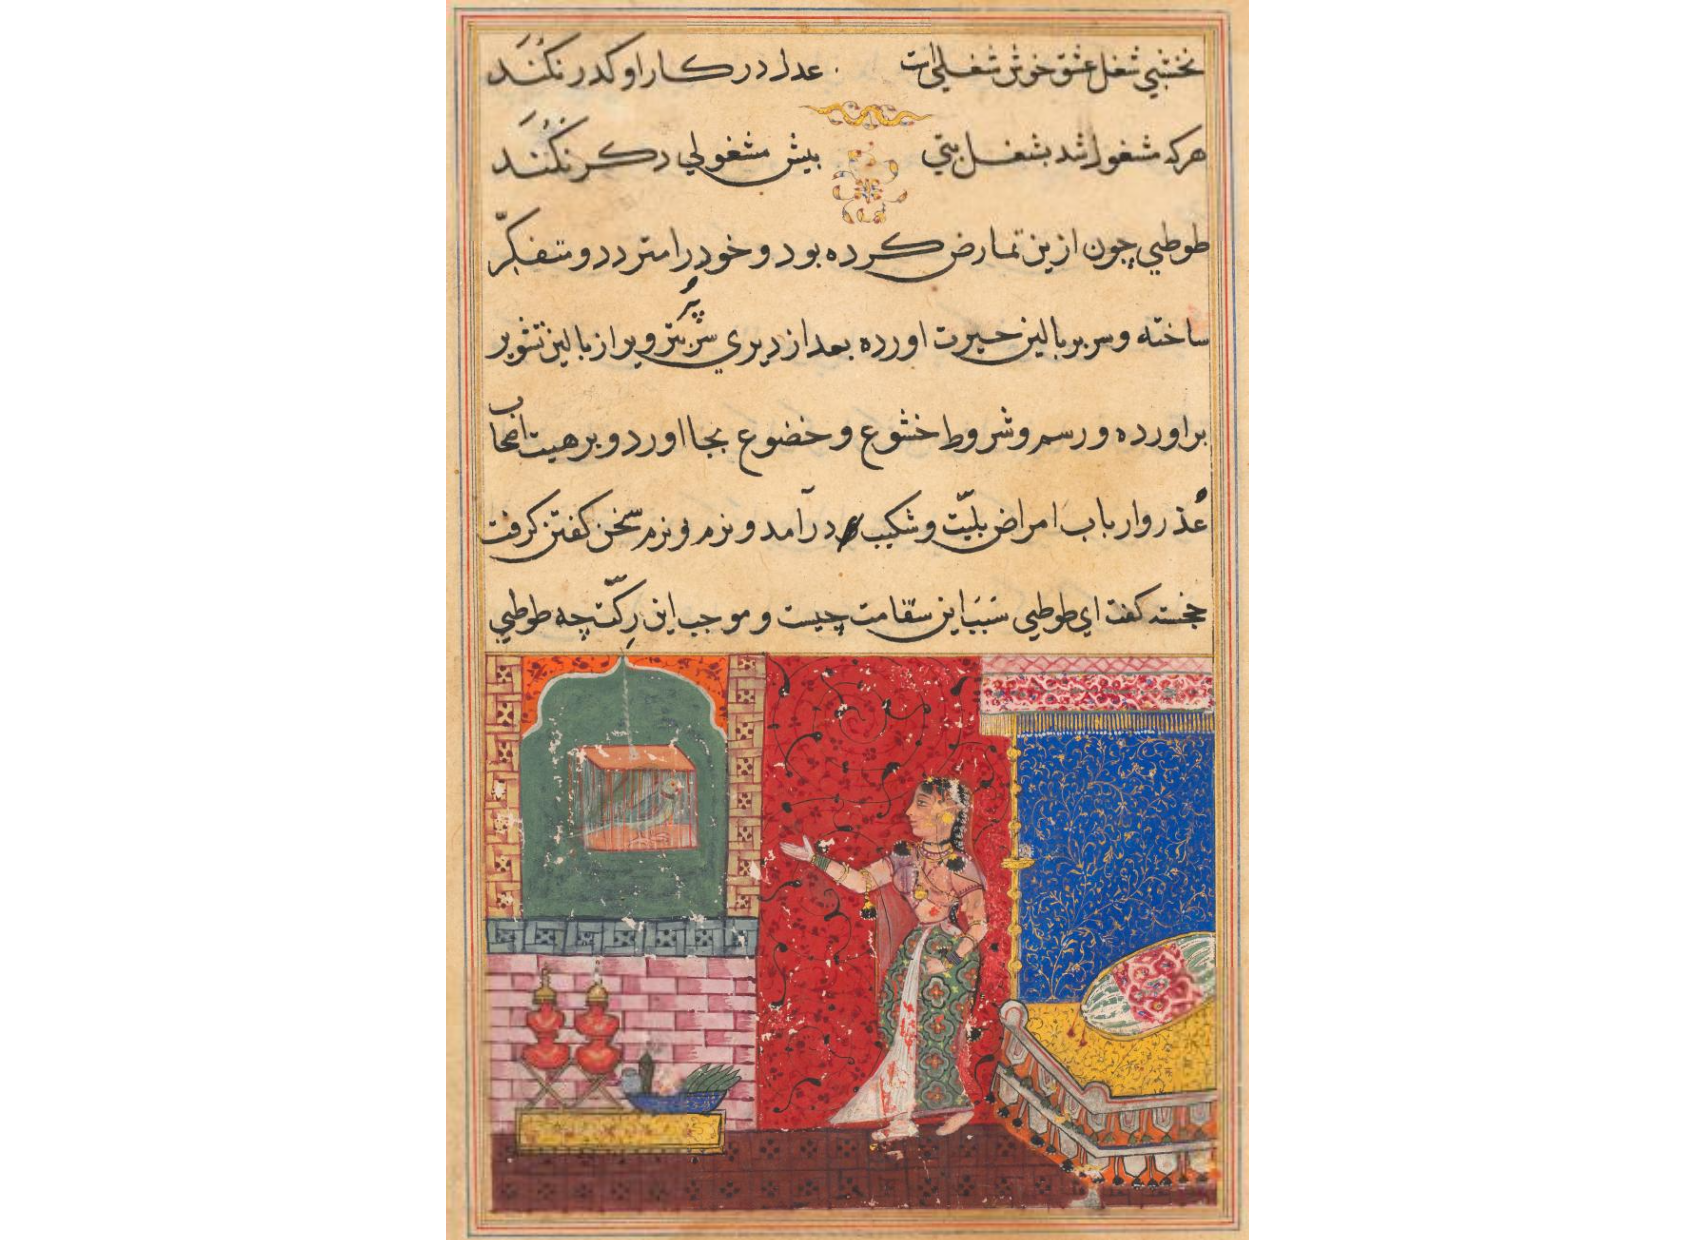 نخشبي شغل عشق خوش شغلي است عدل در كار او كدر نكنند
هركه مشغول شد بشغل بتي بيش مشغولي دكر نكنند
طوطي چون ازين تمارض كرده بود و خود را متردد و متفكّر
ساخته و سر بر بالين حيرت اورده بعد از ديري سر پُر تزوير از بالين تشوير
براورده و رسم و شروط خشوع و خضوع بجا اورد و بر هيت اصحاب
عُذر وارباب امراض بليّت و شكيب درآمد و نرم و نرم سخن كفتن كرفت
خجسته كفت اي طوطي سَبَب اين سقامت چيست و موجب اين رِكّت چه طوطي